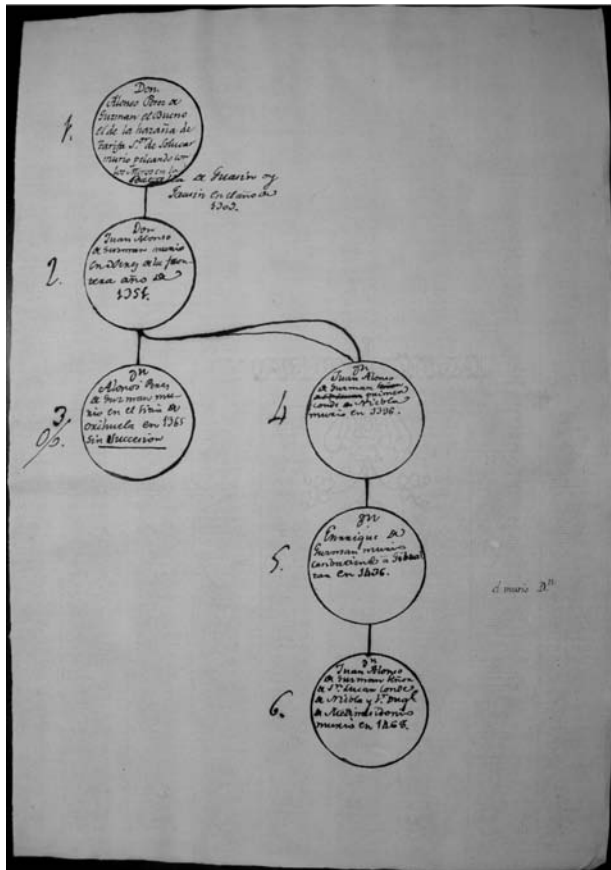 1.
Don
Alonso Perez de
Guzman el Bueno
el de la hazaña de
Tarifa S.or de Solucar
murio peleando con
los Moros en la
de Guasin oy
Gausin en el año de
1309.
2.
Don
Juan Alonso
de Guzman murio
en Xerez de la fron
tera año de
1351.
3
o/s.
Dn
Alonso Perez
de Guzman mu-
rio en el sitio de
orihuela en 1365
Sin Succesion
4
Dn
Juan Alonso
de Guzman
primer
conde de Niebla
murio en 1396.
5.
Dn
Enrrique de
Guzman murio
combatiendo a Gibral
tar en 1436.
el murio D.n
6.
Dn
Juan Alonso
de Guzman Señor
de S.n Lucar Conde
de Niebla y 1.º Duq.e
de Medinasidonia
murio en 1468.